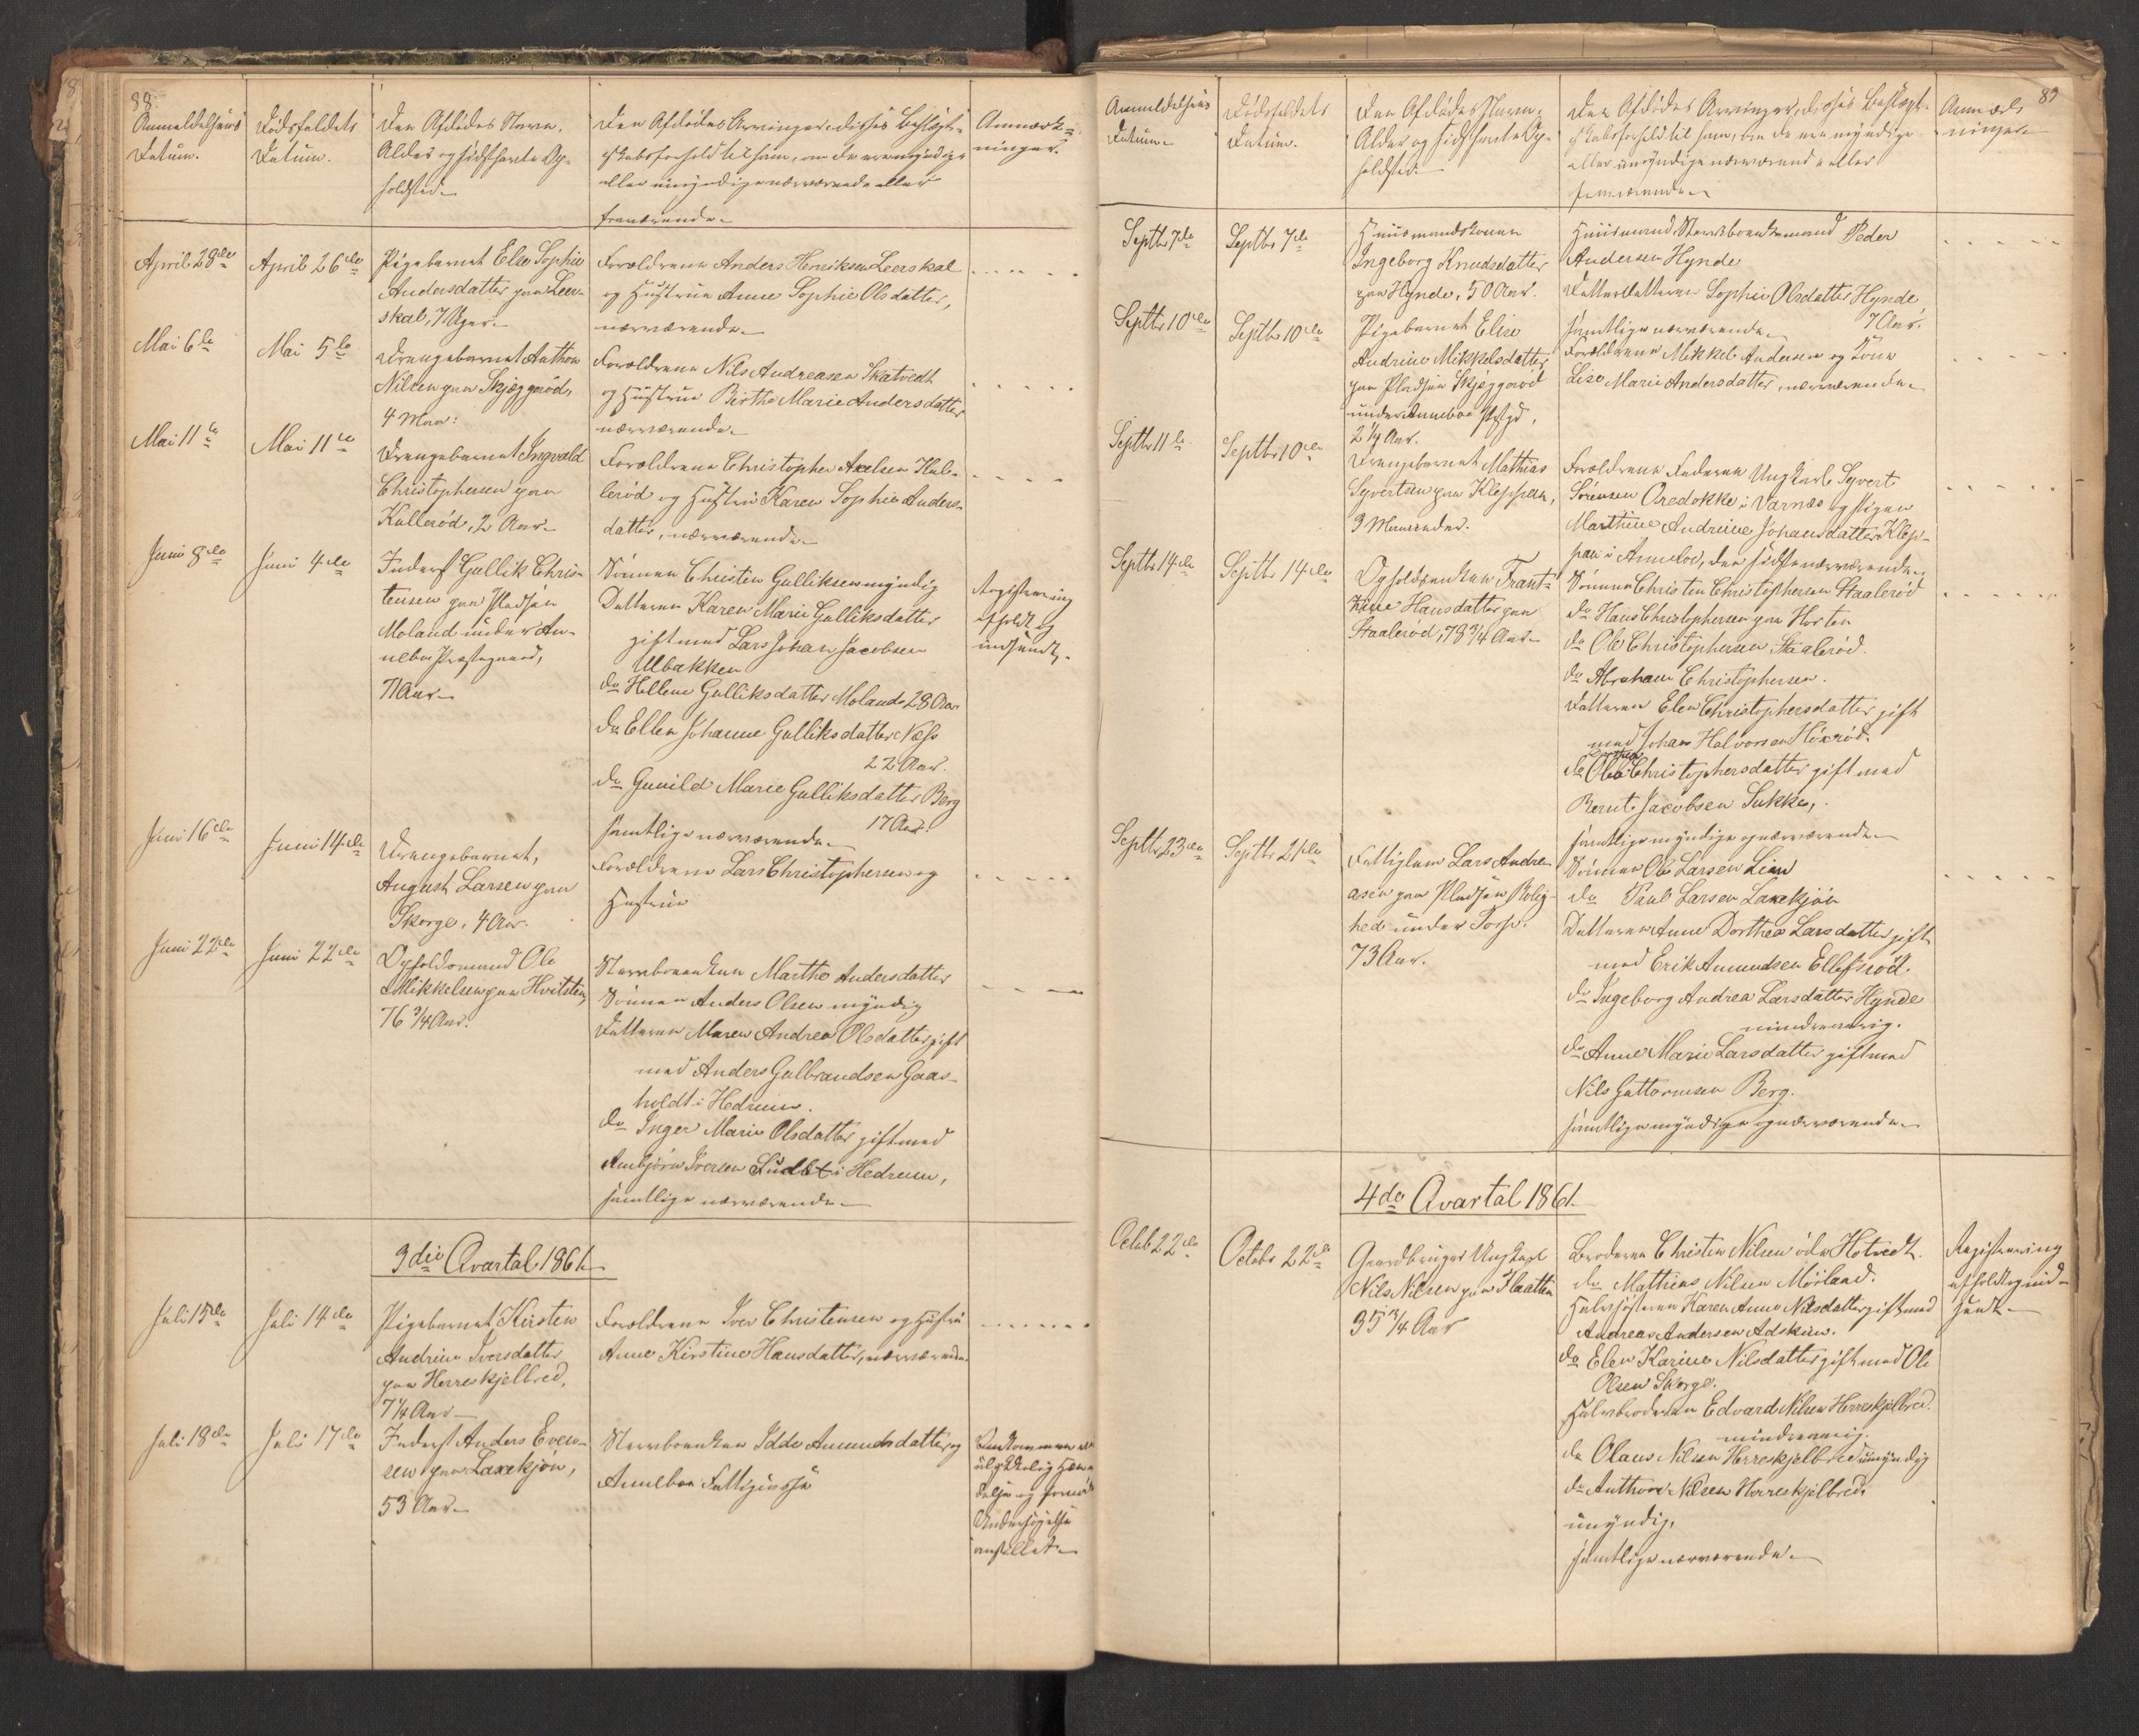 88.
Anmeldelsens
Datum.
Dödsfaldets
Datum.
Den Afdödes Navn,
Alder og sidst havte Op-
holdsted
Den Afdödes Arvinger, disses Beslægt-
skabsforhold til ham, om de ere myndige
eller umyndige nærværende eller
fraværende
Anmærk-
ninger.
April 28de
April 26de
Pigebarnet Elen Sophie
Andersdatter paa Leer-
skal, 7 Uger
Forældrene Anders Henriksen Leerskal
og Hustrue Anne Sophie Olsdatter,
nærværende
Mai 6te
Mai 5te
Drengebarnet Anthon
Nilsen paa Skjæggeröd,
4 Maan:
Forældrene Nils Andreasen Skatvedt
og Hustrue Birthe Marie Andersdatter
nærværende
Mai 11te
Mai 11te
Drengebarnet Ingvald
Christophersen paa
Kalleröd, 2 Aar
Forældrene Christopher Axelsen Kal-
leröd og Hustru Karen Sophie Anders-
datter, nærværende
Juni 8de
Juni 4de
Inderst Gullik Chris-
tensen paa Pladsen
Moland under An-
nebu Præstegaard,
71 Aar
Sönnen Christen Gulliksen myndig
Datteren Karen Marie Gulliksdatter
gift med Lars Johan Jacobsen
Ulbakken
do Hellene Gulliksdatter Moland 28 Aar
do Ellen Johanne Gulliksdatter Næs
22 Aar.
do Gunild Marie Gulliksdatter Berg
17 Aar.
samtlige nærværende
Registrering
afholdt og
indsendt.
Juni 16de
Juni 14de
Drengebarnet,
August Larsen paa
Skorge, 4 Aar.
Forældrene Lars Christophersen og
Hustrue
Juni 22de
Juni 22de
Opholdsmand Ole
Mikkelsen paa Hvitsten,
76 3/4 Aar.
Stervboenken Marthe Andersdatter
Sönnen Anders Olsen myndig
Datteren Maren Andrea Olsdatter gift
med Anders Gulbrandsen Gaas-
holdt i Hedrum.
do Inger Marie Olsdatter gift med
Ambjörn Iversen i Hedrum,
samtlige nærværende
3die Qvartal 1861
Juli 15de
Juli 14de
Pigebarnet Kirsten
Andrine Iversdatter
paa Herreskjelbred,
7 1/4 Aar
Forældrene Iver Christensen og Hustru
Anne Kirstine Hansdatter, nærværende
Juli 18de
Juli 17de
Inderst Anders Even-
sen paa Laxekjön,
53 Aar
Stervboenken Idde Amundsdatter og
Annebu Fattigcasse
Omkommen ved
ulykkelig Hæn-
delse og
Undersögelse
anstillet
89
Anmeldelsens
Datum
Dödsfaldets
Datum.
Den Afdödes Navn,
Alder og sidst havte Op-
holdsted
Den Afdödes Arvinger, disses Beslægt-
skabsforhold til ham, om de ere myndige
eller umyndige nærværende eller
fraværende
Anmærk-
ninger
Septbr 7de
Septbr 7de
Huusmandskonen
Ingeborg Knudsdatter
paa Hynde, 50 Aar.
Huusmand Stervboenkemand Peder
Andersen Hynde
Datterdatteren Sophie Olsdatter Hynde
7 Aar.
samtlige nærværende
Septbr 10de
Septbr 10de
Pigebarnet Elise
Andrine Mikkelsdatter
paa Pladsen Skjæggeröd
under Anneboe Præstgd,
2 1/4 Aar.
Forældrene Mikkel Andersen og Kone
Lise Marie Andersdatter, nærværende
Septbr 11te
Septbr 10de
Drengebarnet Mathias
Syvertsen paa Kleppan,
9 Maaneder.
Forældrene Faderen Ungkarl Syvert
Sörensen Oredokke i Varnæs og Pigen
Marthine Andrine Johansdatter Klep-
pan i Anneboe, den sidste nærværende
Septbr 14de
Septbr 14de
Opholdsenken Frant-
zine Hansdatter paa
Staaleröd, 78 3/4 Aar
Sönnen Christen Christophersen Staaleröd
do Hans Christophersen paa Horten
do Ole Christophersen Staaleröd.
do Abraham Christophersen.
Datteren Elen Christophersdatter gift
med Johan Halvorsen Hönröd.
do Olea Christophersdatter gift med
Bernt Jacobsen Sukke,
samtlige myndige og nærværende
Septbr 23de
Septbr 21de
Fattiglem Lars Andre-
asen paa Pladsen Rolig-
hed under Torp.
73 Aar.
Sönnen Ole Larsen Lian
do Paul Larsen Laxekjön
Datteren Anne Dorthea Larsdatter gift
med Erik Amundsen Ellefsröd.
do Ingeborg Andrea Larsdatter Hynde
mindreaarig.
do Anne Marie Larsdatter gift med
Nils Guttormsen Berg.
samtlige myndige og nærværende
4de Qvartal 1861
Octob 22de
Octobr 22de
Gaardbruger Ungkarl
Nils Nilsen paa Flaatten
35 3/4 Aar
Broderen Christen Nilsen öde Hotvedt.
do Mathias Nilsen Mörland.
Halvsösteren Karen Anne Nilsdatter gift med
Andreas Andersen Adskin.
do Elen Karine Nilsdatter gift med Ole
Olsen Skorge.
Halvbroderen Edvard Nilsen Herreskjelbred.
mindreaarig.
do Olaus Nilsen Herreskjelbred umyndig
do Anthon Nilsen Herreskjelbred
umyndig,
samtlige nærværende
Registrering
afholdt og ind-
sendt